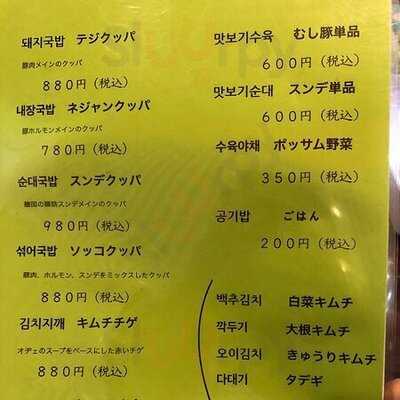 돼지국밥 テジクッパ
豚肉メインのクッパ
880円(税込)
내장국밥 ネジャンクッパ
豚ホルモンメインのクッパ
780円(税込)
순대국밥 スンデクッパ
韓国の腸詰スンデメインのクッパ
980円(税込)
섞어국밥 ソッコクッパ
豚肉、ホルモン、スンデをミックスしたクッパ
880円(税込)
김치찌깨 キムチチゲ
オヂェのスープをベースにした赤いチゲ
880円(税込)
맛보기수육 むし豚単品
600円(税込)
맛보기순대 スンデ単品
600円(税込)
수육야채 ポッサム野菜
350円(税込)
공기밥 ごはん
200円(税込)
백추김치 白菜キムチ
깍두기 大根キムチ
오이김치 きゅうりキムチ
다대기 タデギ